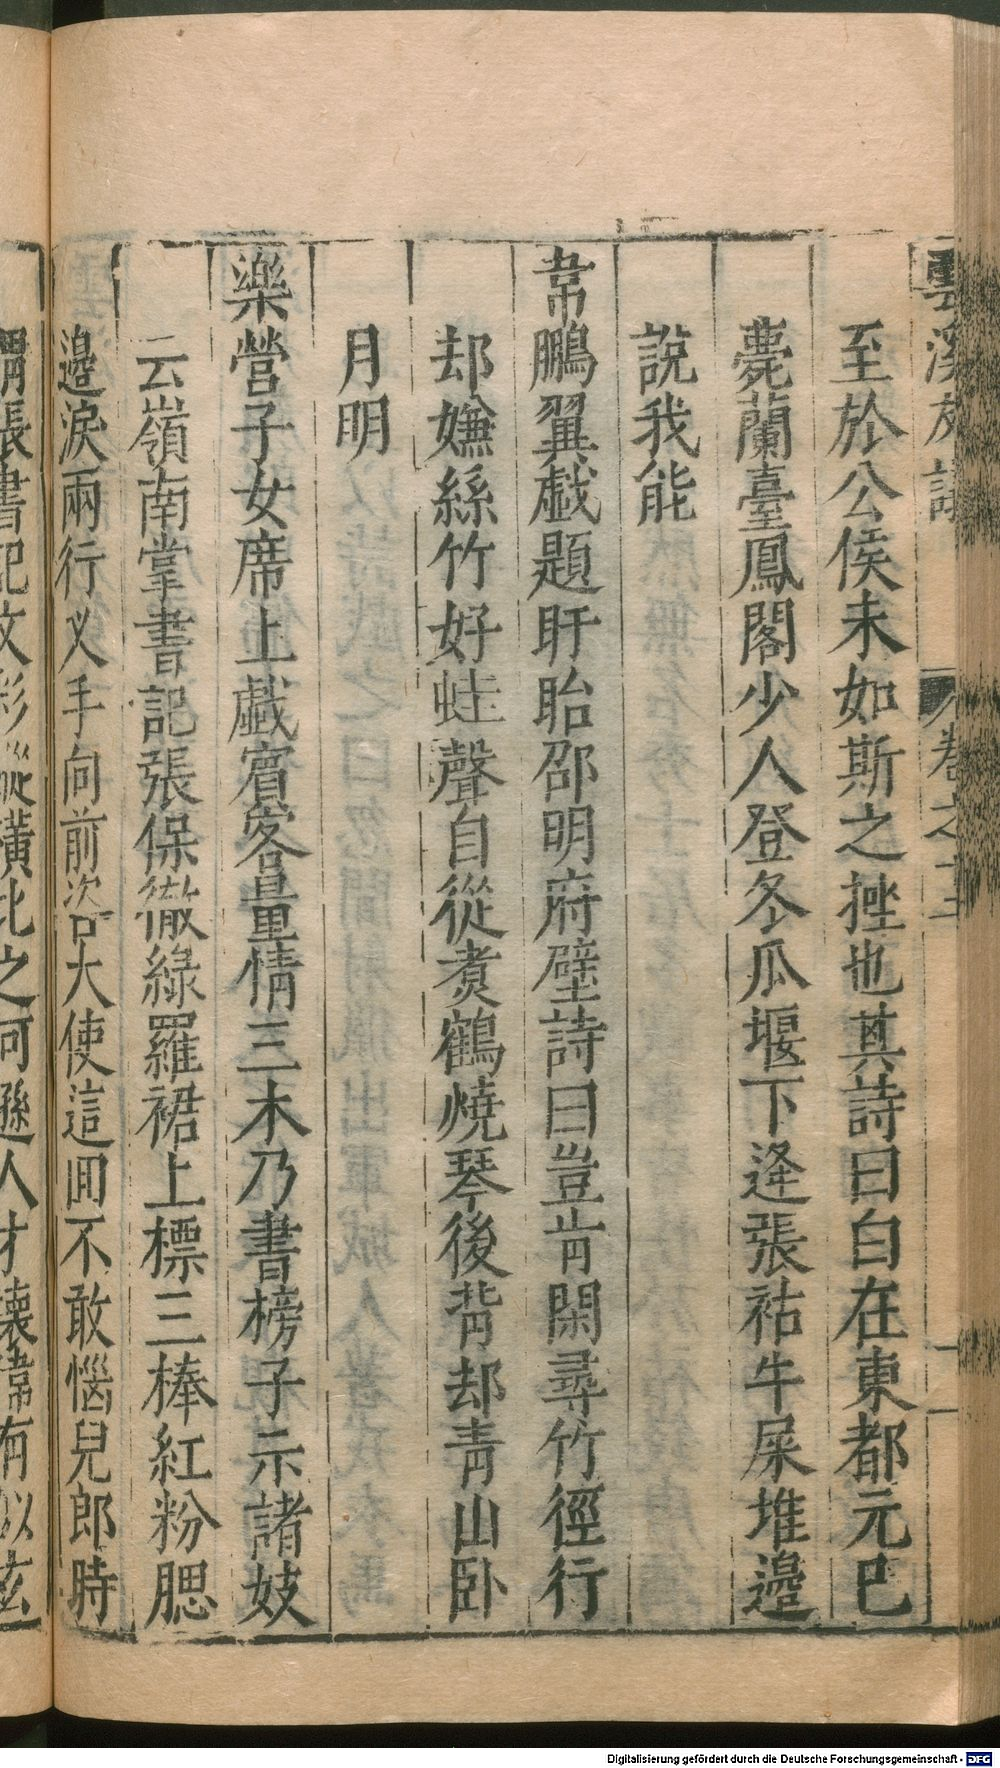 雲溪友議 卷之十二
至於公侯未如斯之挫也其詩曰白在東都元已
薨蘭臺鳳閣少人登冬瓜堰下逄張祜牛屎堆邉
說我能
韋鵬翼戱題盱眙邵明府壁詩曰豈肯閑尋竹徑行
却嫌絲竹好蛙聲自從煑鶴燒琴後背却青山卧
月明
樂營子女席上戱賓客量情三木乃書榜子示諸妓
云嶺南掌書記張保㣲綠羅裙上標三棒紅粉腮
邉淚兩行㕚手向前咨大使這囬不敢惱兒郎時
謂張書記文彩縱橫比之何遜人才壊偉有似玄
Digitalisierung gefördert durch die Deutsche Forschungsgemeinschaft - DFG